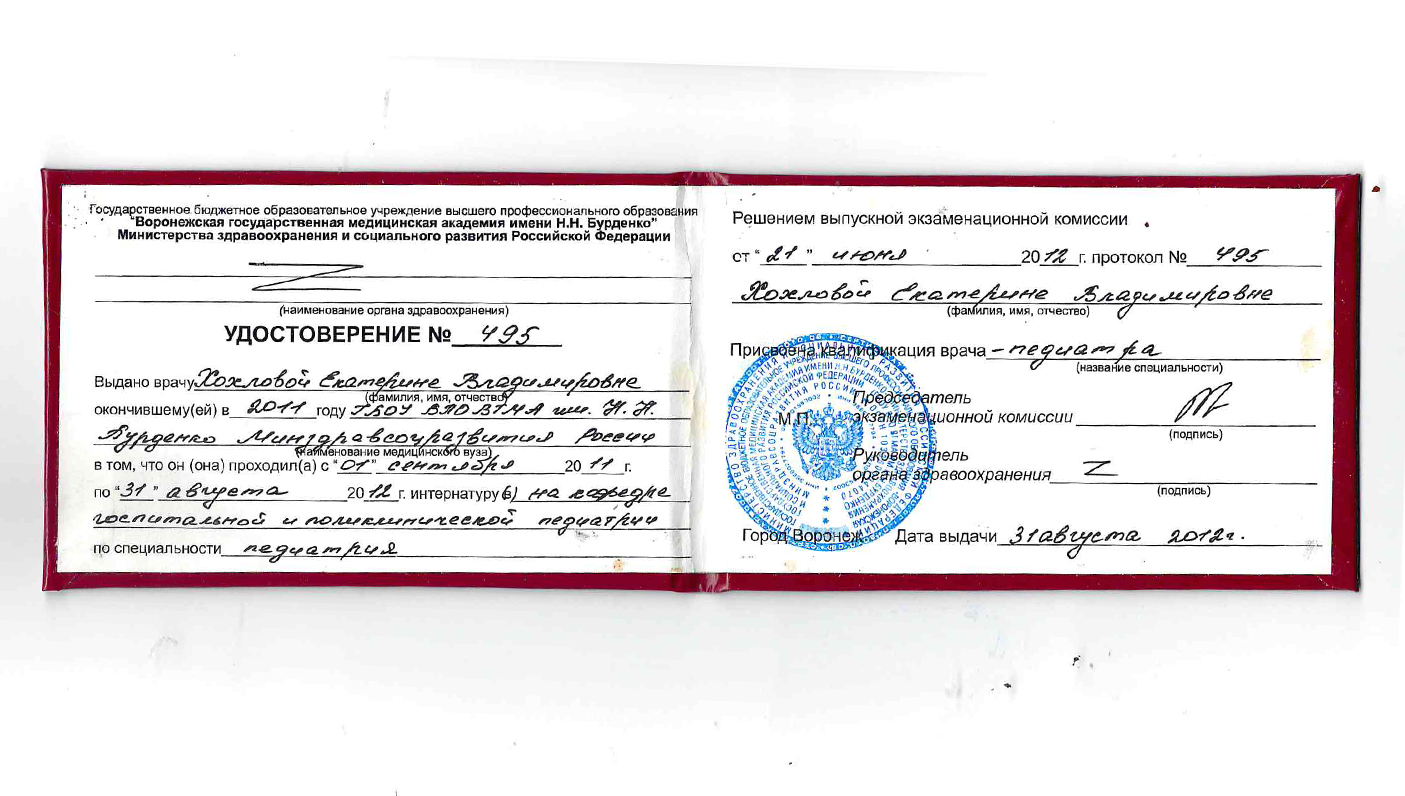 Государственное бюджетное образовательное учреждение высшего профессионального образования
"Воронежская государственная медицинская академия имени Н.Н. Бурденко"
Министерства здравоохранения и социального развития Российской Федерации
(наименование органа здравоохранения)
УДОСТОВЕРЕНИЕ № 495
Выдано врачу Хохловой Екатерине Владимировне
(фамилия, имя, отчество)
окончившему(ей) в 2011 году ГБОУ ВПО ВГМА им. Н. Н.
Бурденко Минздравсоцразвития России
(наименование медицинского вуза)
в том, что он (она) проходил(а) с "01" сентября 2011 г.
по "31" августа 2012 г. интернатуру (в) на кафедре
госпитальной и поликлинической педиатрии
по специальности педиатрия
Решением выпускной экзаменационной комиссии
от "21" июня 2012 г. протокол № 495
Хохловой Екатерине Владимировне
(фамилия, имя, отчество)
Присвоена квалификация врача - педиатра
(название специальности)
Председатель
М.П. экзаменационной комиссии
(подпись)
Руководитель
органа здравоохранения
(подпись)
Город Воронеж Дата выдачи 31 августа 2012г.